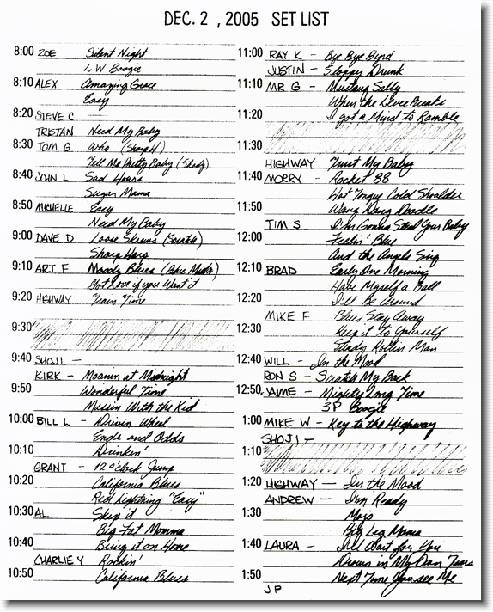 DEC. 2, 2005 SET LIST
8:00 ZOE Silent Night
L.W. Boogie
8:10 ALEX Amazing Grace
Easy
8:20 STEVE C —
TRISTAN Need My Baby
8:30 TOM G.
Tell Me Pretty Baby
8:40 Sad Hours
Sugar Mama
8:50 MICHELLE Easy
Need My Baby
9:00 DAVE D Loose Screws
9:10 ART F Moody Blues
Hot Love if you Want it
9:20 HIGHWAY Train Time
9:30
9:40 SHOJI —
KIRK - Moanin at Midnight
9:50 Wonderful Time
Missin With the Kid
10:00 BILL L - Driven Wheel
Ends and Odds
10:10 Drinkin'
GRANT - 12 o'clock Jump
10:20 California Blues
Red Lightning "Easy"
10:30 AL Skip it
Big Fat Momma
10:40 Bring it on Home
CHARLIE Y Rockin'
10:50 California Blues
11:00 RAY K - Bye Bye Bird
JUSTIN - Sloppy Drunk
11:10 MR G - Mustang Sally
When the Levee Breaks
11:20 I got a Mind to Ramble
11:30
HIGHWAY Trust My Baby
11:40 MORRY - Rocket 88
Hot Tongey Cold Shoulder
11:50 Wang Dang Doodle
TIM S I'm Gonna Steal Your Baby
12:00 Feelin' Blue
And the Angels Sing
12:10 BRAD Early One Morning
Have Myself a Ball
12:20 I'll Be Around
MIKE F Blues Stay Away
12:30 Keep it To Yourself
Steady Rollin Man
12:40 WILL - In the Mood
RON S - Scratch My Back
12:50 JAIME - Mighty Long Time
JP Boogie
1:00 MIKE W - Key to the Highway
SHOJI —
1:10
1:20 HIGHWAY — In the Mood
ANDREW - I'm Ready
1:30 Mojo
Big Leg Mama
1:40 LAURA - I'll Wait for You
Dream in My Own Time
1:50 Next Time You see Me
JP